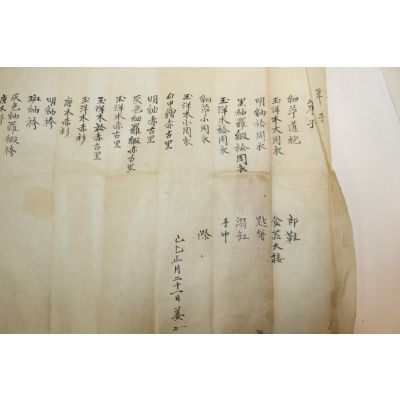 單子
細苧道袍
玉洋木大周衣
明紬袷周衣
黑紬羅緞袷周衣
玉洋木袷周衣
細苧小周衣
玉洋木小周衣
赤古里
明紬赤古里
灰色紬羅緞赤古里
玉洋木赤古里
玉洋木袷赤古里
玉洋木赤衫
唐木赤衫
明紬袴
斑紬袴
灰色紬羅緞袴
唐木袴
郎鞋
食器大接
匙箸
溺缸
手巾
際
己巳正月二十一日 姜